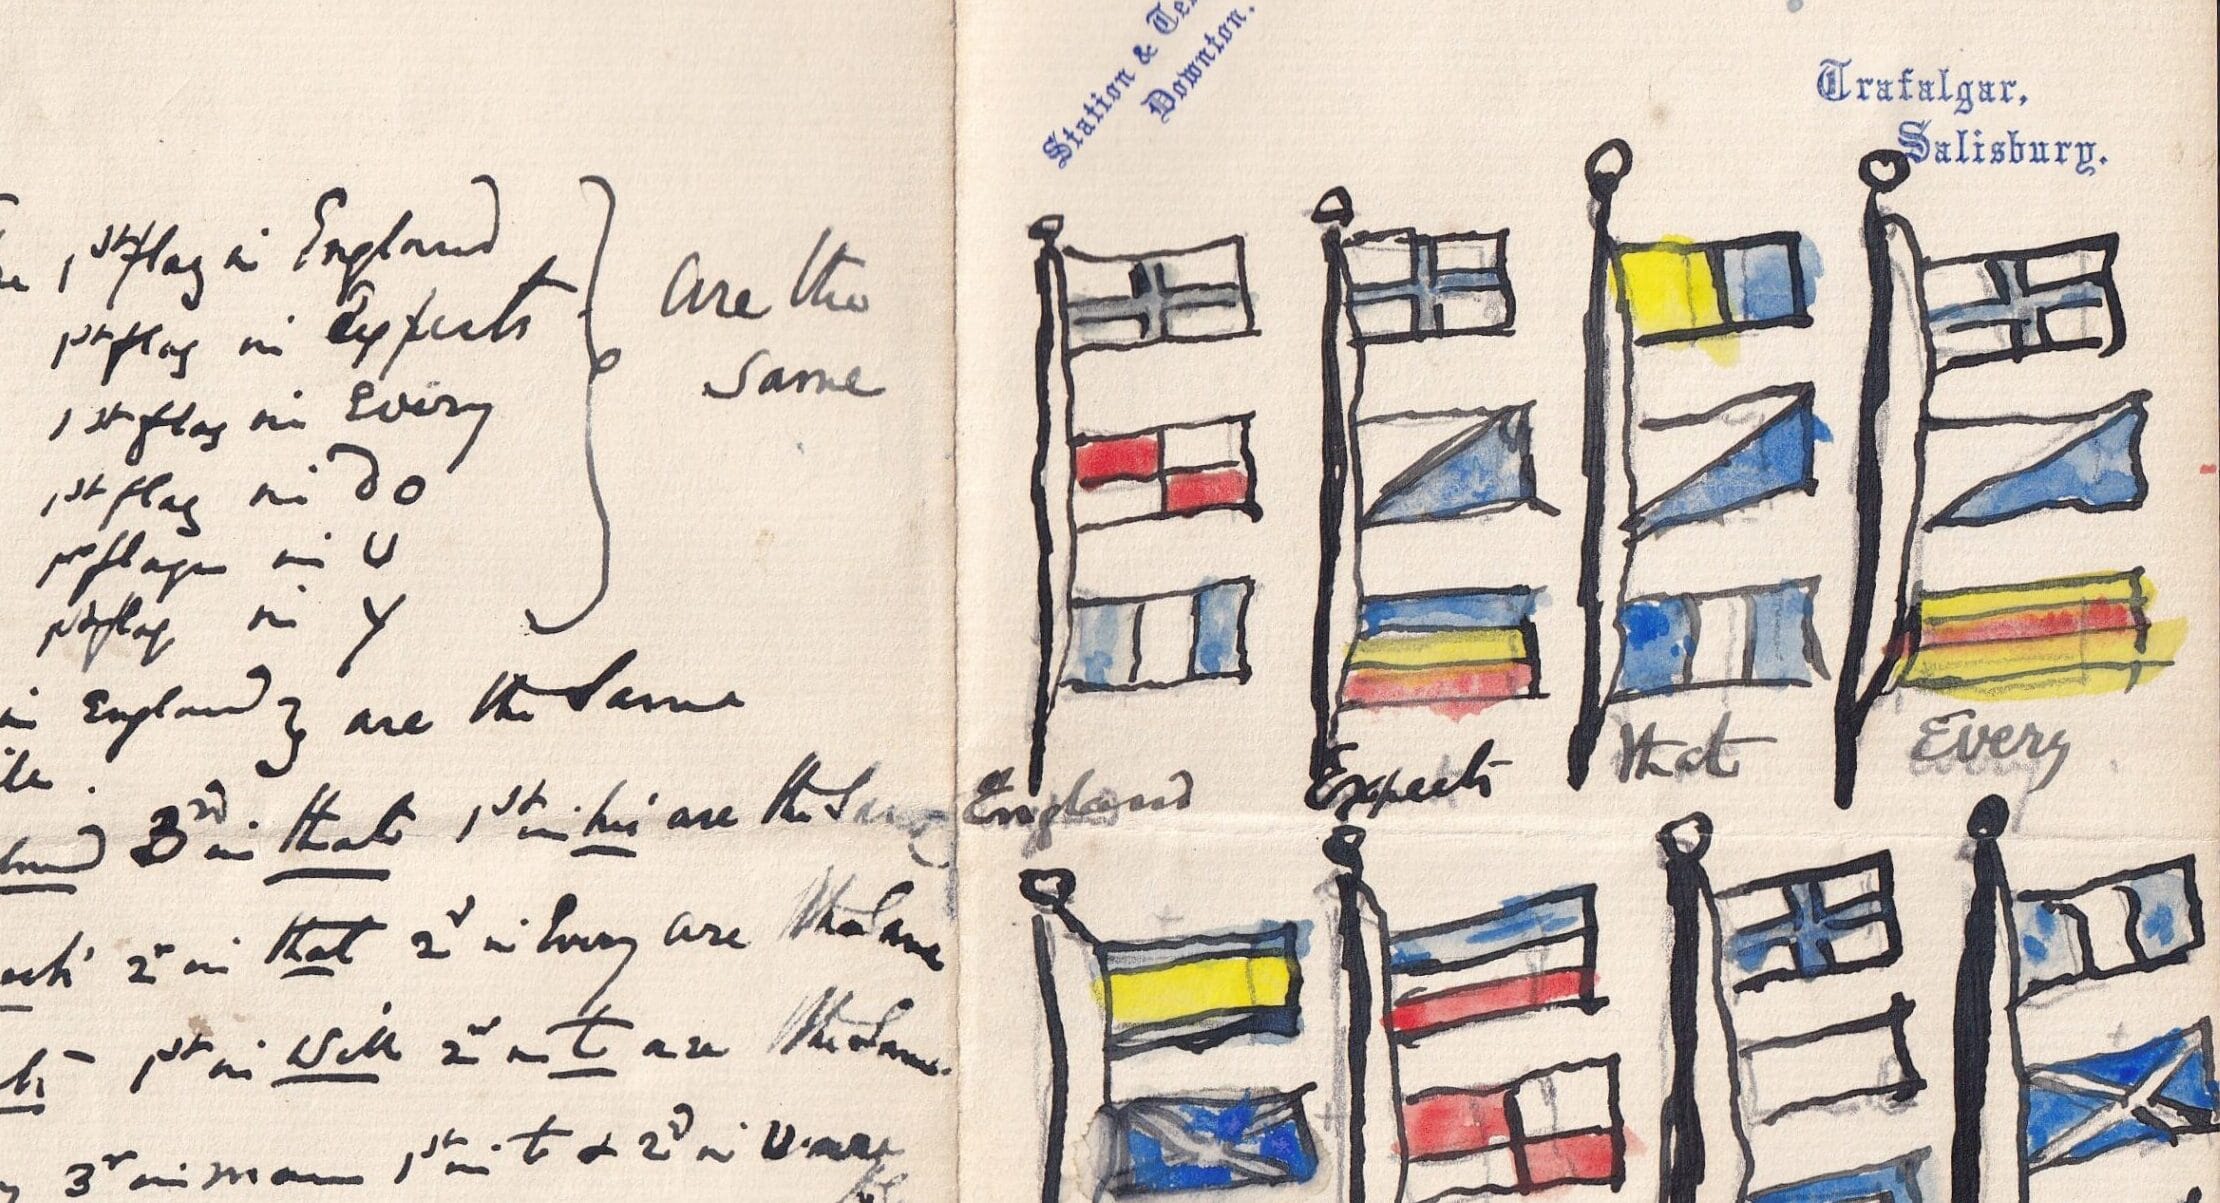 1st flag in England
1st flag in Expects
1st flag in Every
1st flag in Do
1st flag in U
1st flag in Y
are the
same
in England } are the Same
3rd in that 1st in his are the Same
2d in that 2d in Every are the Same
1st in Will 2d in T are the Same.
3rd in man 1st in t & 2d in U
Station &
Downton.
Trafalgar,
Salisbury.
England Expects that Every